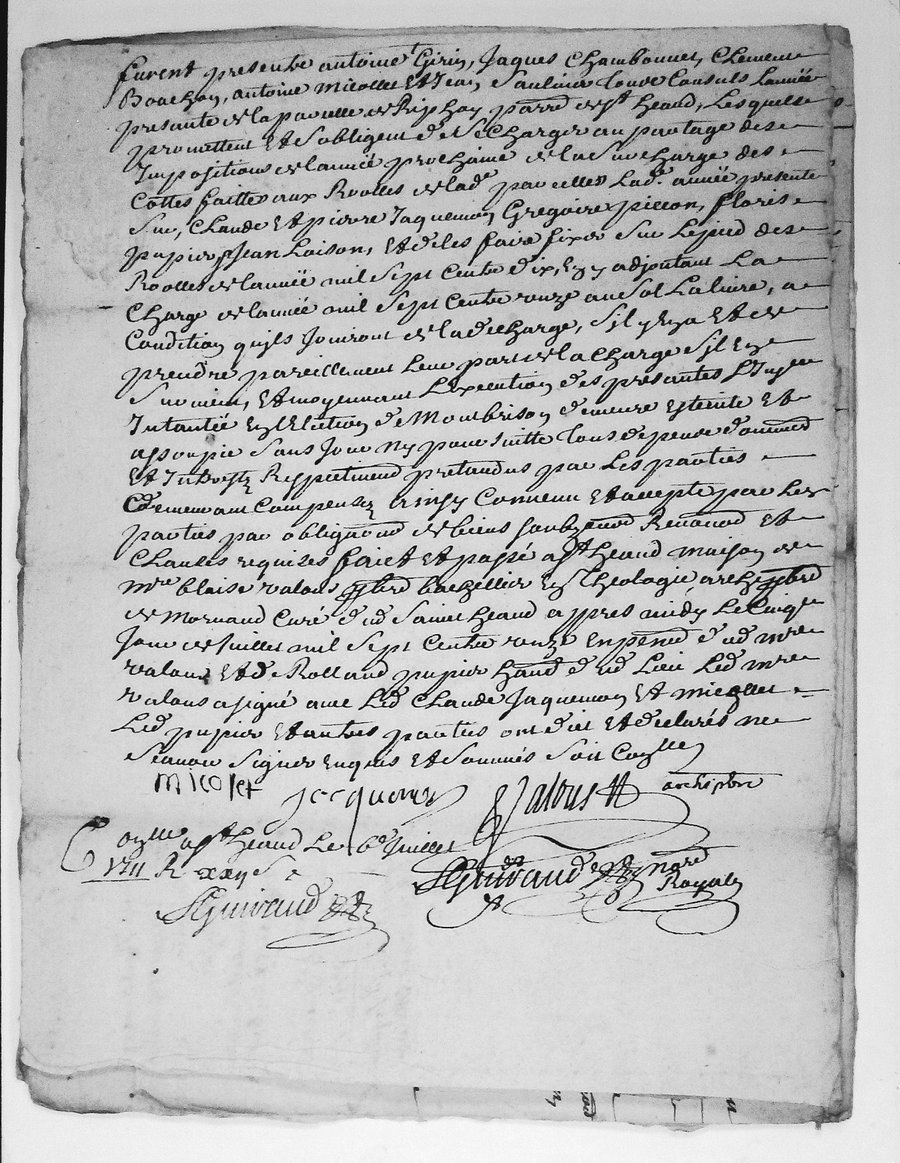 furent presents antoine Girin, Jaques Chambonnet, Clement
Bouchon, antoine micollet Et Jean Saulinier tous Consuls Lannée
presante de la parcelle de parre de st heand, Lesquels
promettent Et sobligent de se Charger au partage des
Impositions de lannée prochaine de la surcharge des
Cottes faittes aux Roolles de lade parcelle Lade année presente
Sur, Claude Et pierre Jaquemon, Gregoire pillon, floris
pupier Jean Loison, Et de les faire fixer sur le pied des
Roolles de lannée mil sept Cents dix, En y adjoutant La
Charge de lannée mil sept Cents onze au sol La livre, a
Condition quils Jouiront de la decharge, sil y En a Et de
prendre pareillement leur part de la Charge sil En
survient, Et moyennant Lexecution des presantes L
Intantée En lElection de Montbrison demeure Esteinte Et
assoupie sans Jour Ny poursuitte tous depens dommes
Et Interestz Respectivemt pretandus par les parties
demeurant Compensez Ainsy Convenu Et accepté par les
parties par obligaons de biens Renaons Et
Clauses requises fait Et passé a st heand maison de
mre blaise valous pbre bachellier En Theologie, archipbre
de Mornand Curé dud Saint heand appres midy Le Cinqe
Jour de Juillet mil sept Cents onze En pence dud mre
valous Et de Rolland pupier hant dud Lieu Led mre
valous a signé avec Led Claude Jaquemon Et micollet
Led pupier Et autres parties ont dit Et declarés ne
scavoir signer Enquis Et sommés soit Conllé
micolet
Jacquemon
Valous
archiprbre
Conllé a st heand Le 6e Juillet
1711 R xxijs
Guiraud
Guiraud
nore
Royal